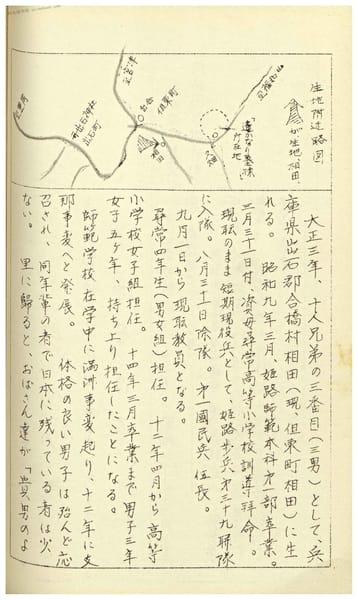 生地附近略図
が生地、相田、
至福知山
「遙かなり墓標」
所在地
至宮津
出合
但東町
相田
市出石神社
出石町
至豊岡
大正三年、十人兄弟の三番目（三男）として、兵
庫県出石郡合橋村相田（現、但東町相田）に生
れる。　昭和九年三月、姫路師範本科第一部卒業。
三月三十一日付、資母尋常高等小学校訓導拝命。
現職のまま短期現役兵として、姫路歩兵第三十九聯隊
に入隊。八月三十一日除隊。第一國民兵　伍長。
九月一日から現職教員となる。
尋常四年生（男女組）担任。　十二年四月から　高等
小学校女子組担任。　十四年三月卒業まで男子三年
女子五ヶ年、持ち上り担任したことになる。
師範学校在学中に満洲事変起り、十二年に支
那事変へと発展。　体格の良い男子は殆んど応
召され、同年輩の者で日本に残っている者は少
ない。　里に帰ると　おばさん達が「貴男のよ